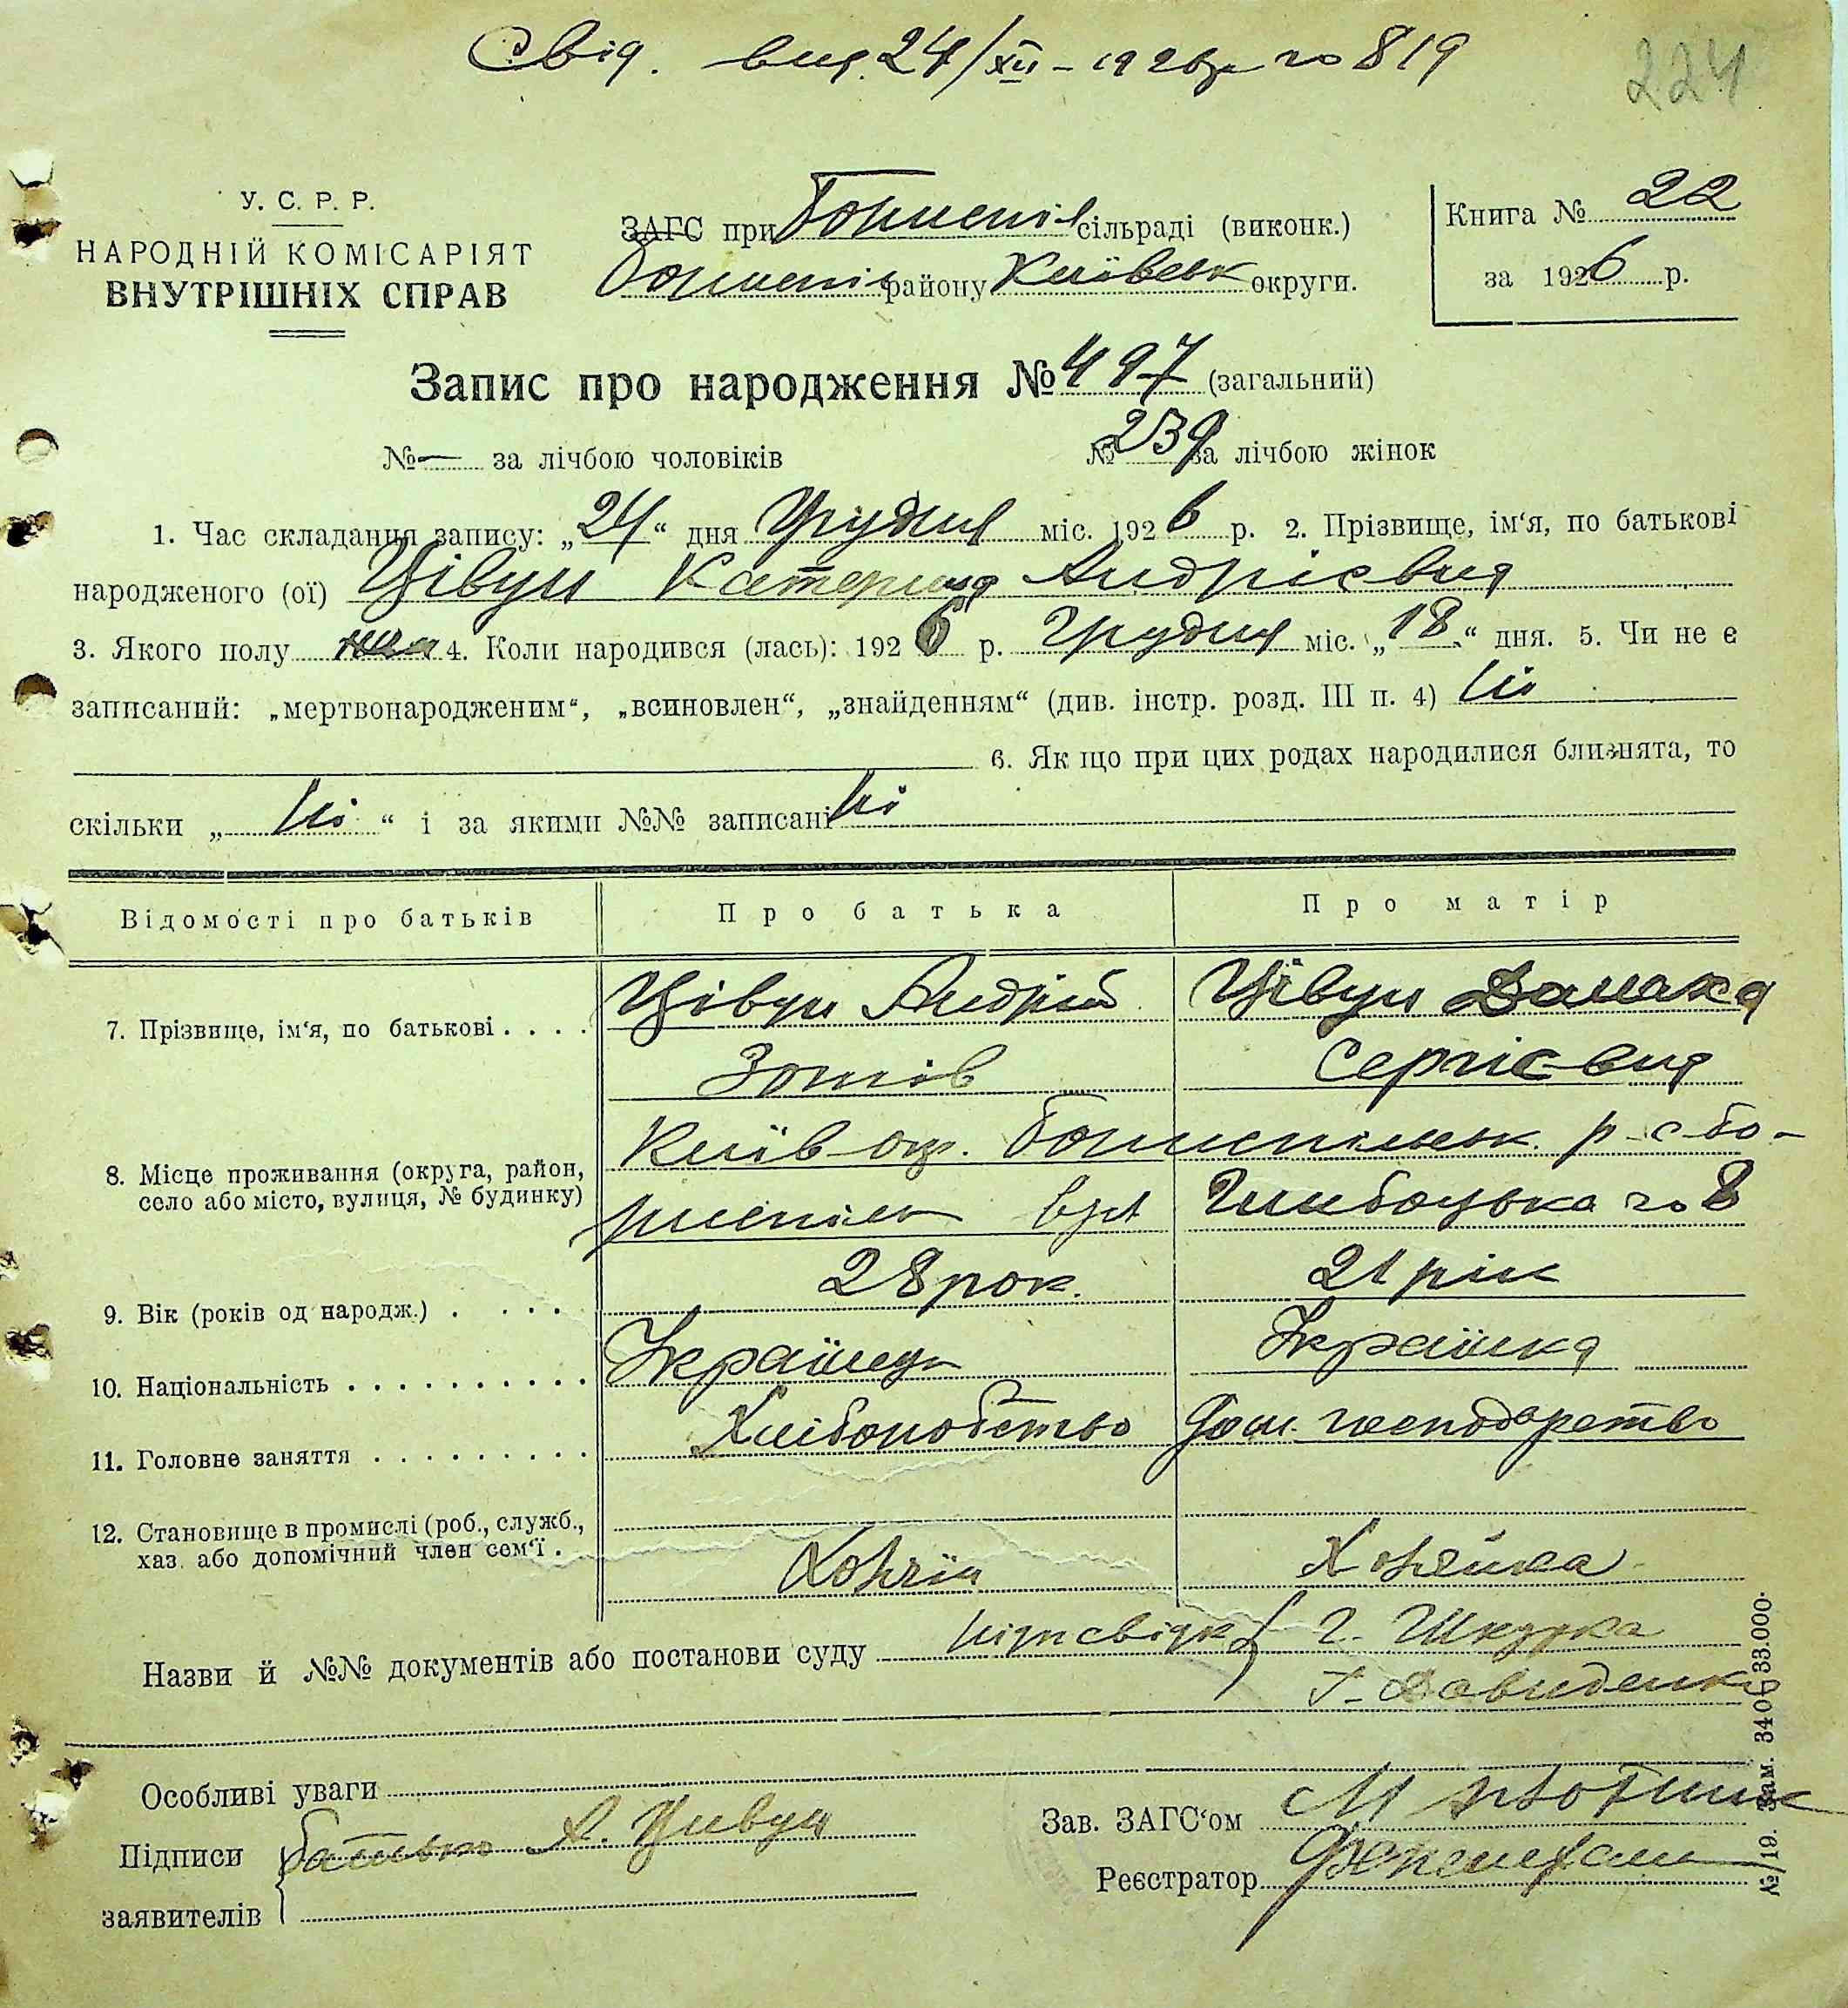 Свід. вид. 24/XII-1926р № 819
224
У. С. Р. Р.
НАРОДНІЙ КОМІСАРІЯТ
ВНУТРІШНІХ СПРАВ
ЗАГС при Бориспіл сільраді (виконк.)
Бориспіл району Київськ округи.
Книга № 22
за 1926 р.
Запис про народження № 497 (загальний)
№ — за лічбою чоловіків № 239 за лічбою жінок
1. Час складання запису: „24“ дня Грудня міс. 1926 р. 2. Прізвище, ім‘я, по батькові
народженого (ої) Цівун Катерина Андрієвна
3. Якого полу 4. Коли народився (лась): 1926 р. Грудня міс. „18“ дня. 5. Чи не є
записаний: „мертвонародженим“, „всиновлен“, „знайденням“ (див. інстр. розд. III п. 4) Ні
6. Як що при цих родах народилися близнята, то
скільки „ Ні “ і за якими №№ записані Ні
Відомості про батьків Про батька Про матір
7. Прізвище, ім‘я, по батькові . . . . Цівун Андрій Цівун Домаха
Зотів Сергієвна
8. Місце проживання (округа, район, Київ окр. Бориспільськ. р-с Бо-
село або місто, вулиця, № будинку) риспіль вул № 8
9. Вік (років од народж.) . . . . 28 рок. 21 рік
10. Національність . . . . . . . . . . Українець Українка
11. Головне заняття . . . . . . . . . Хліборобство Дом. господарство
12. Становище в промислі (роб., служб.,
хаз. або допомічний член сем‘ї . Хозяїн Хозяйка
Назви й №№ документів або постанови суду Г. Шкурка
Г. Давиденко
Особливі уваги
Підписи батько А. Цивун
заявителів
Зав. ЗАГС‘ом
Реєстратор
№/19. Зам. 3406 33.000.